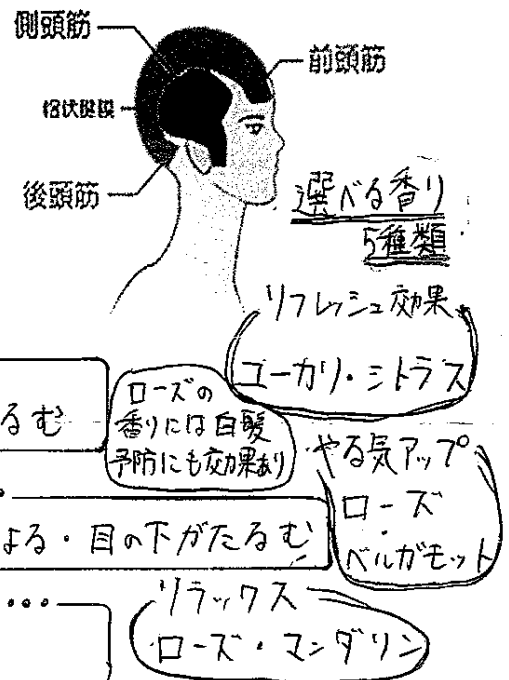 側頭筋
前頭筋
帽状腱膜
後頭筋
選べる香り
5種類
リフレッシュ効果
ユーカリ・シトラス
るむ
ローズの
香りには白髪
予防にも効果あり
やる気アップ
ローズ
・
ベルガモット
よる・目の下がたるむ
リラックス
ローズ・マンダリン